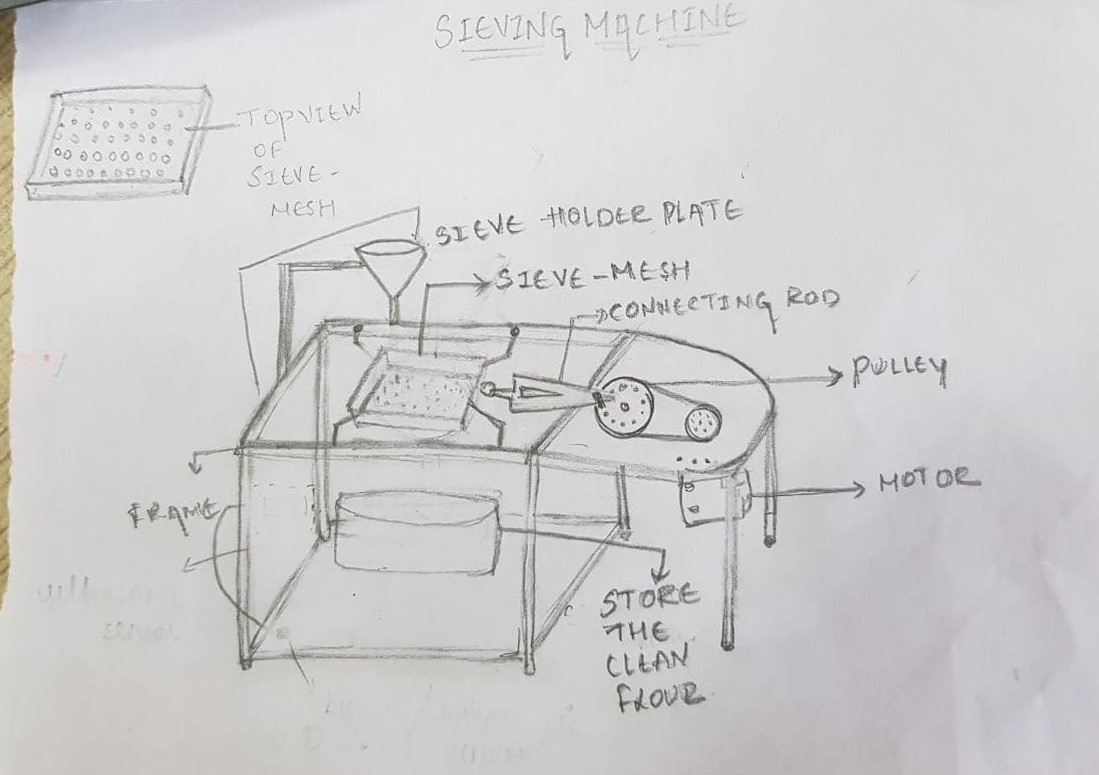 SIEVING MACHINE
TOPVIEW
OF
SIEVE-
MESH
SIEVE HOLDER PLATE
SIEVE-MESH
CONNECTING ROD
PULLEY
MOTOR
FRAME
STORE
THE
CLEAN
FLOUR